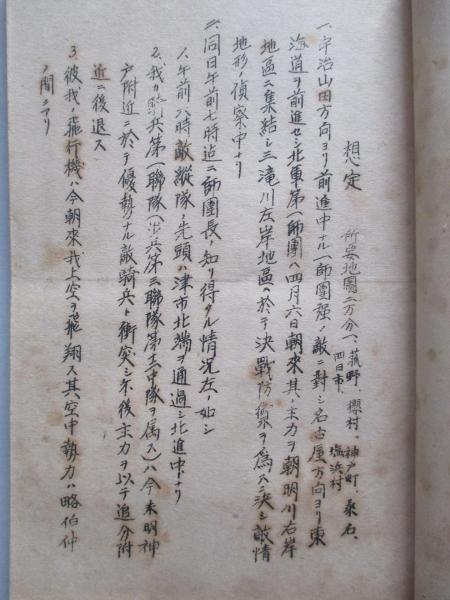 想定
所要地図二万分一、菰野、桜村、神戸町、桑名、
四日市、塩浜村
一、宇治山田方向ヨリ前進中ナル一師団強ノ敵ニ対シ名古屋方向ヨリ東
海道ヲ前進セシ北軍第一師団ハ四月六日朝来其ノ主力ヲ朝明川右岸
地区ニ集結シ三滝川左岸地区ニ於テ決戦防禦ヲ為スニ決シ敵情
地形ノ偵察中ナリ
二、同日午前七時迄ニ師団長ノ知リ得タル情況左ノ如シ
1、午前六時敵縦隊ノ先頭ハ津市北端ヲ通過シ北進中ナリ
2、我カ騎兵第一聯隊(歩兵第三聯隊第十一中隊ヲ属ス)ハ今未明神
戸附近ニ於テ優勢ナル敵騎兵ト衝突シ爾後主力ヲ以テ追分附
近ニ後退ス
3、彼我ノ飛行機ハ今朝来我上空ヲ飛翔ス其空中勢力ハ略伯仲
ノ間ニアリ